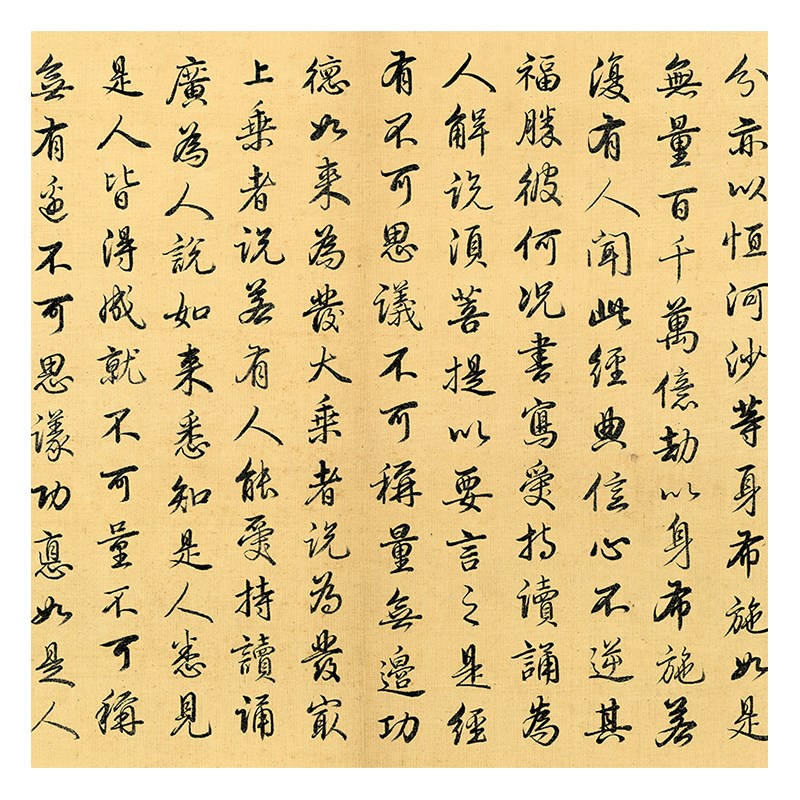 分亦以恒河沙等身布施如是
無量百千萬億劫以身布施若
復有人聞此經典信心不逆其
福勝彼何況書寫受持讀誦為
人解說須菩提以要言之是經
有不可思議不可稱量無邊功
德如來為發大乘者說為發最
上乘者說若有人能受持讀誦
廣為人說如来悉知是人悉見
是人皆得成就不可量不可稱
無有邊不可思議功德如是人